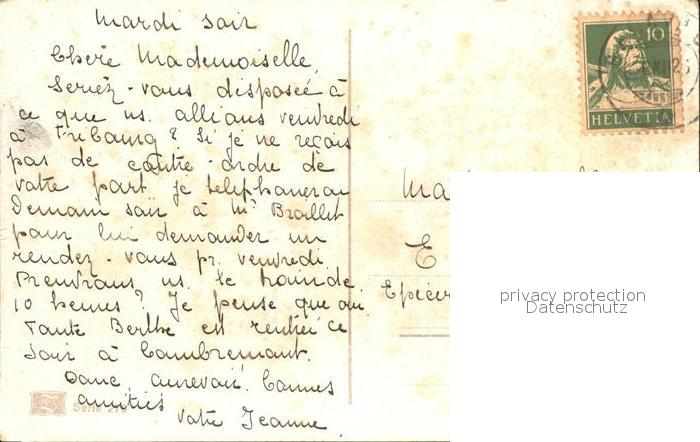 Mardi soir
Chère Mademoiselle,
Seriez-vous disposée à
ce que ns. allions vendredi
à Fribourg? Si je ne reçois
pas de contre-ordre de
votre part je téléphonerai
Demain soir à Mr Braillet
pour lui demander un
rendez-vous pr. vendredi.
Prendrons ns. le train de
10 heures? Je pense que oui.
Tante Berthe est rentrée ce
soir à Combremont.
Donc, aurevoir. Bonnes
amitiés
Votre Jeanne.
Serie
10
HELVETIA
E
Epicer
privacy protection
Datenschutz